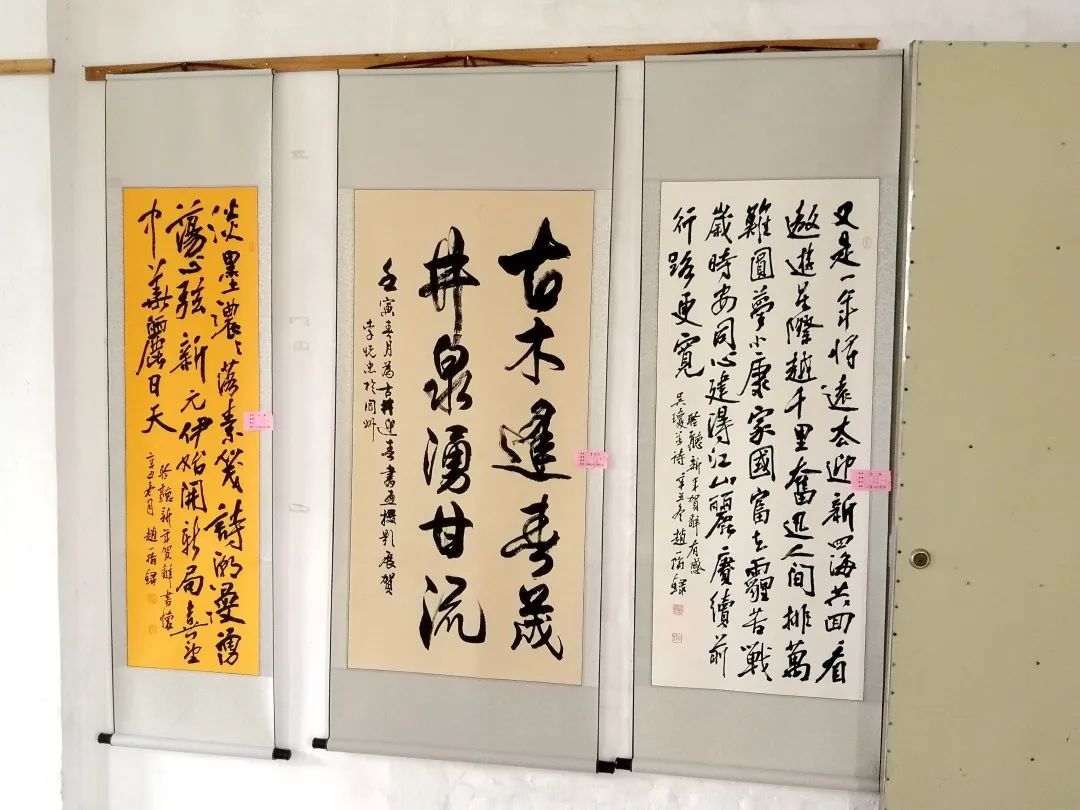 又是一年將遠去迎新四海共面看
遨遊星際越千里奮迅人間排萬
難圓夢小康家國富去霾苦戰
歲時安同心建得江山麗賡續前
行路更寬
聆聽新年賀辭有感
吳瓊詩辛丑冬趙一指錄
古木逢春茂
井泉湧甘流
壬寅春月為古驛迎春書畫攝影展賀
李悅忠於同州
淡墨濃濃落素箋詩潮漫湧
蕩心弦新元伊始開新局喜望
中華麗日天
聆聽新年賀辭書懷
辛丑冬月趙一指錄